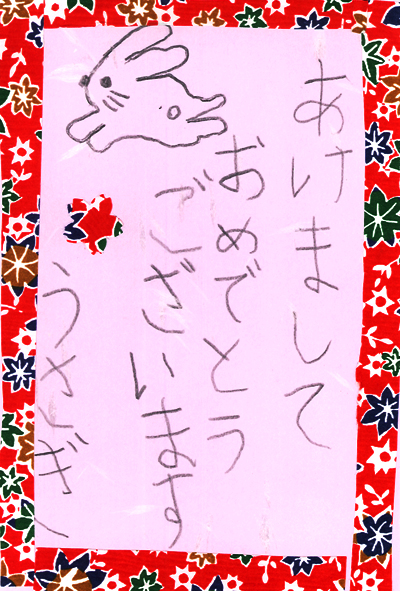 あけまして
おめでとう
ございます
うさぎ